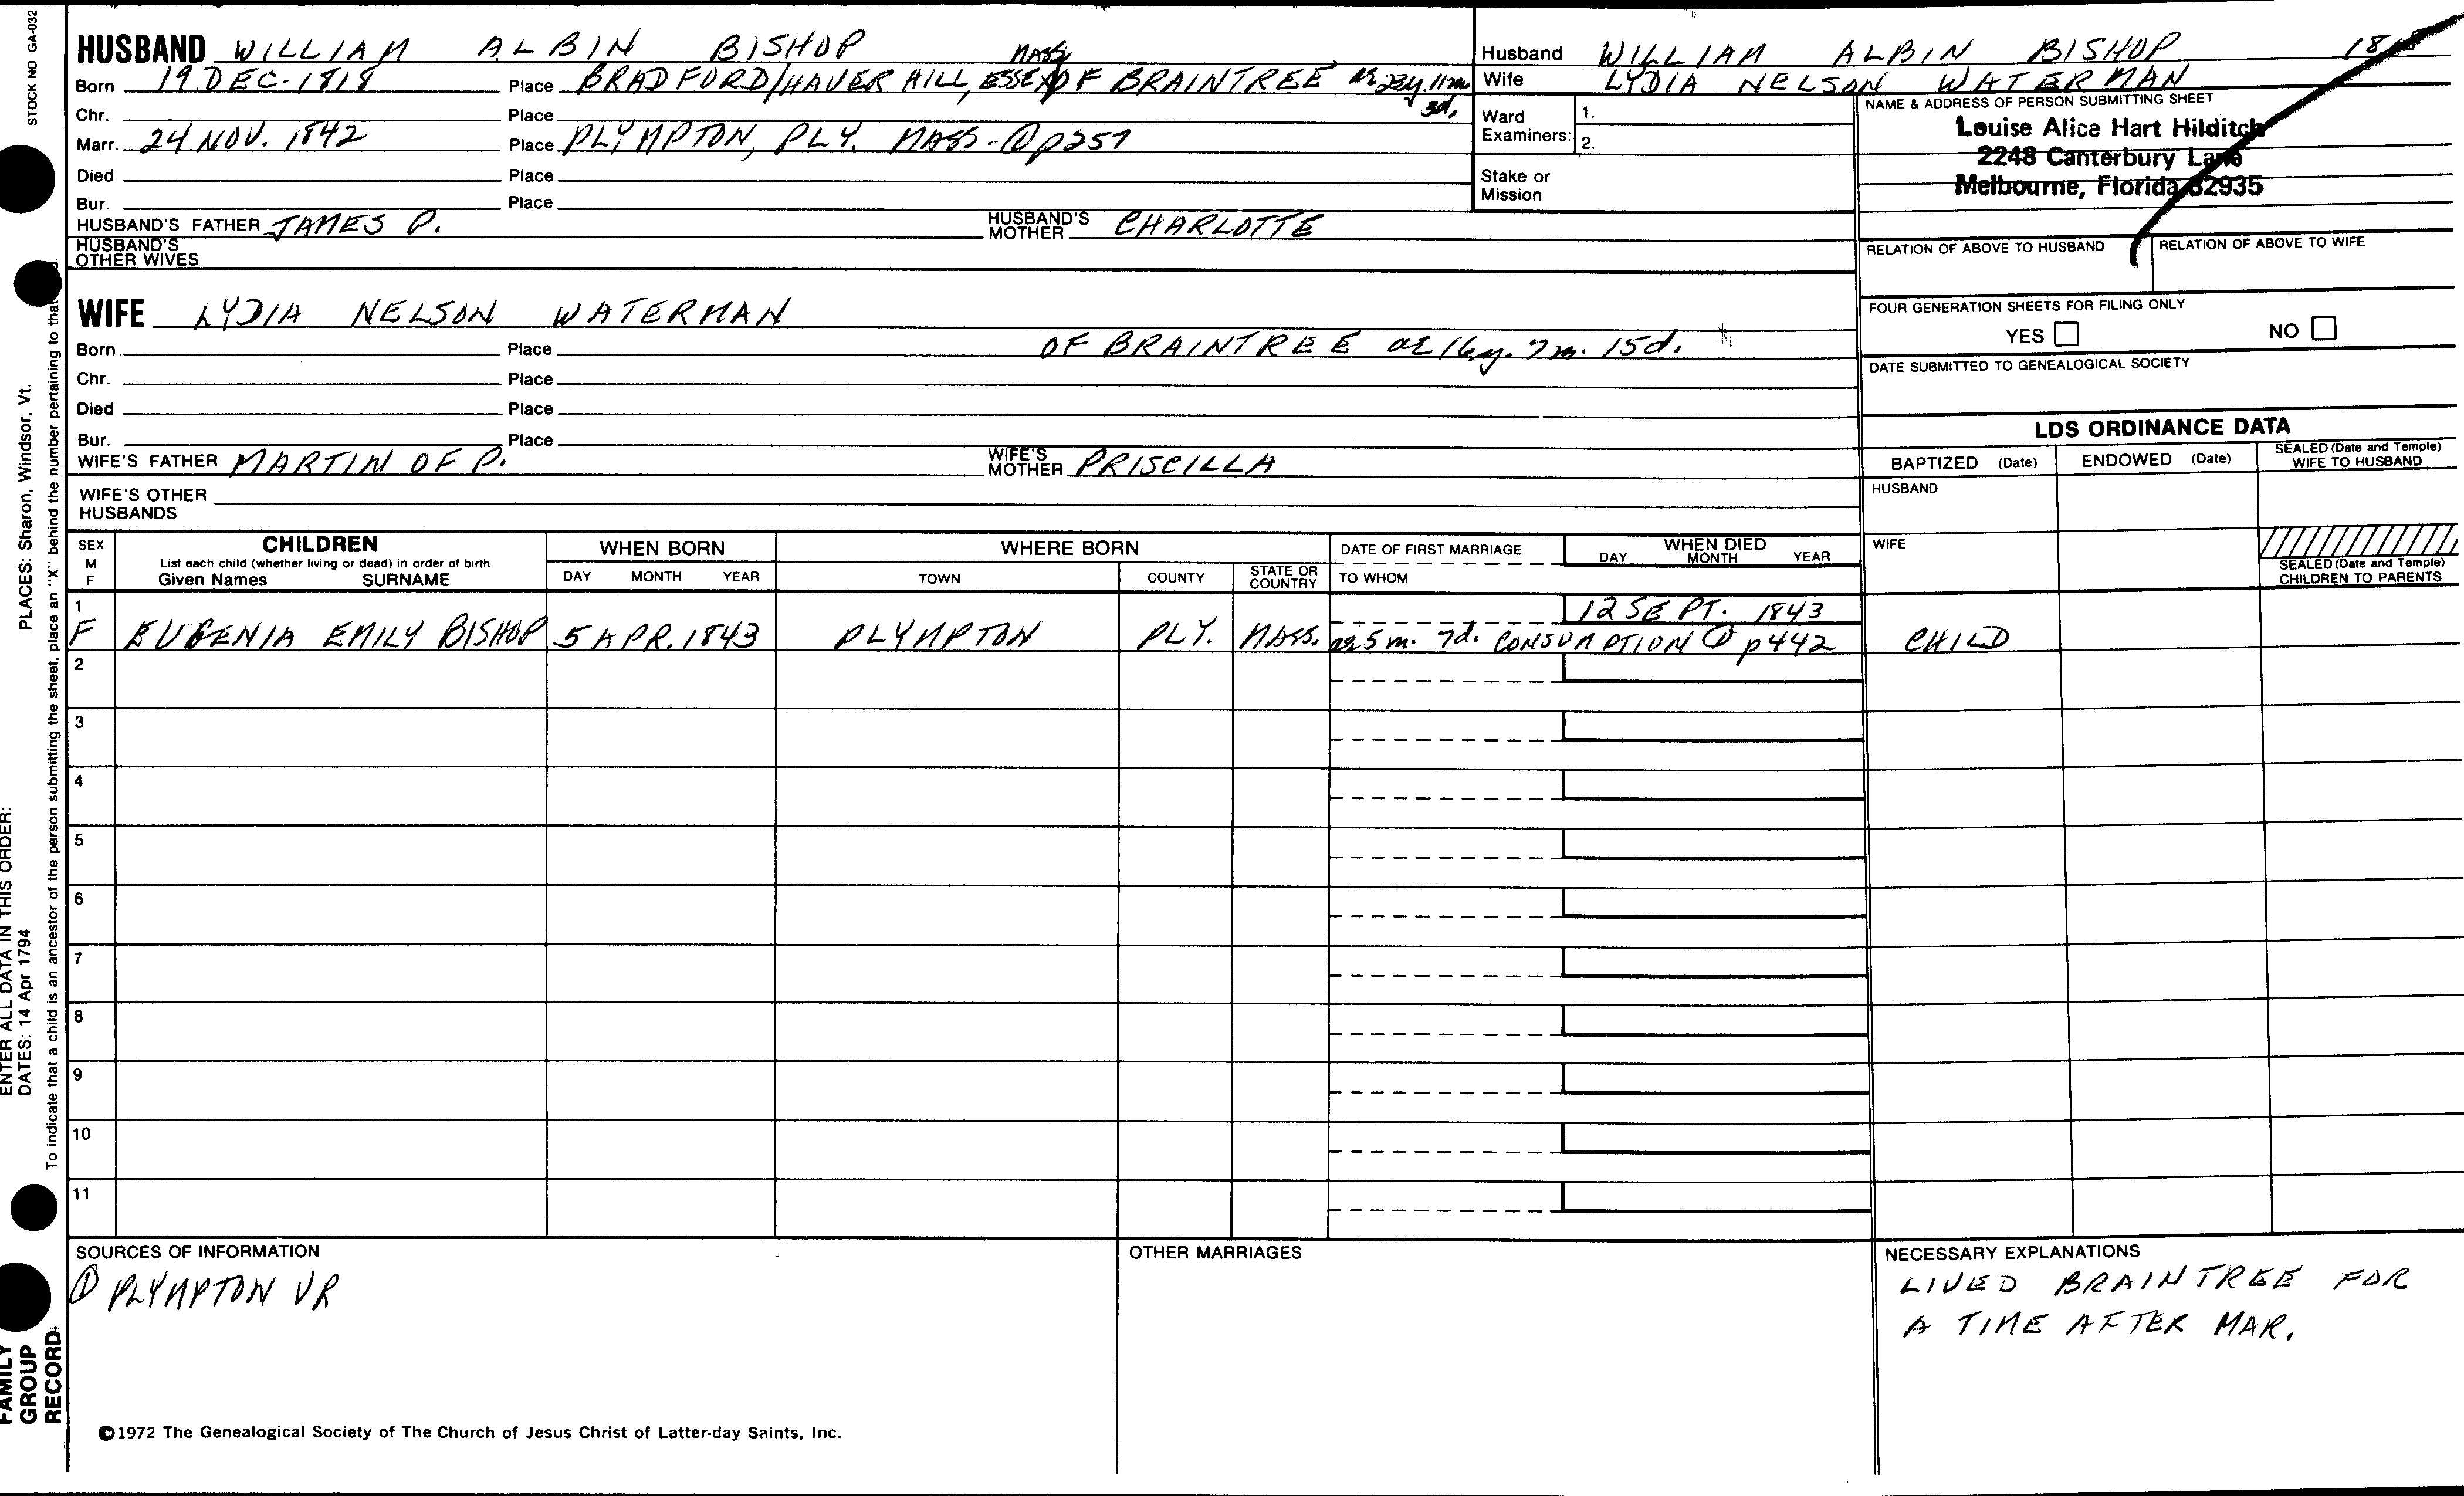 STOCK NO GA-032
HUSBAND WILLIAM ALBIN BISHOP
Born 19 DEC. 1818 Place BRADFORD/HAVERHILL, ESSEX MASS OF BRAINTREE ae 23y. 11m 3d.
Chr. Place
Marr. 24 NOV. 1842 Place PLYMPTON, PLY. MASS - ① p257
Died Place
Bur. Place
HUSBAND'S FATHER JAMES P. HUSBAND'S MOTHER CHARLOTTE
HUSBAND'S OTHER WIVES
Husband WILLIAM ALBIN BISHOP 1818
Wife LYDIA NELSON WATERMAN
Ward Examiners: 1.
2.
Stake or Mission
NAME & ADDRESS OF PERSON SUBMITTING SHEET
Louise Alice Hart Hilditch
2248 Canterbury Lane
Melbourne, Florida 32935
RELATION OF ABOVE TO HUSBAND RELATION OF ABOVE TO WIFE
WIFE LYDIA NELSON WATERMAN
Born Place OF BRAINTREE ae 16y. 7m. 15d.
Chr. Place
Died Place
Bur. Place
WIFE'S FATHER MARTIN OF P. WIFE'S MOTHER PRISCILLA
WIFE'S OTHER HUSBANDS
FOUR GENERATION SHEETS FOR FILING ONLY
YES NO
DATE SUBMITTED TO GENEALOGICAL SOCIETY
LDS ORDINANCE DATA
BAPTIZED (Date) ENDOWED (Date) SEALED (Date and Temple) WIFE TO HUSBAND
HUSBAND
WIFE
SEALED (Date and Temple) CHILDREN TO PARENTS
SEX M F
CHILDREN
List each child (whether living or dead) in order of birth
Given Names SURNAME
WHEN BORN
DAY MONTH YEAR
WHERE BORN
TOWN COUNTY STATE OR COUNTRY
DATE OF FIRST MARRIAGE
TO WHOM
WHEN DIED
DAY MONTH YEAR
1 12 SEPT. 1843
F EUGENIA EMILY BISHOP 5 APR. 1843 PLYMPTON PLY. MASS. ae 5m. 7d. CONSUMPTION ① p442 CHILD
2
3
4
5
6
7
8
9
10
11
SOURCES OF INFORMATION
① PLYMPTON VR
OTHER MARRIAGES
NECESSARY EXPLANATIONS
LIVED BRAINTREE FOR
A TIME AFTER MAR.
©1972 The Genealogical Society of The Church of Jesus Christ of Latter-day Saints, Inc.
FAMILY
GROUP
RECORD
ENTER ALL DATA IN THIS ORDER:
DATES: 14 Apr 1794 PLACES: Sharon, Windsor, Vt.
To indicate that a child is an ancestor of the person submitting the sheet, place an "X" behind the number pertaining to that